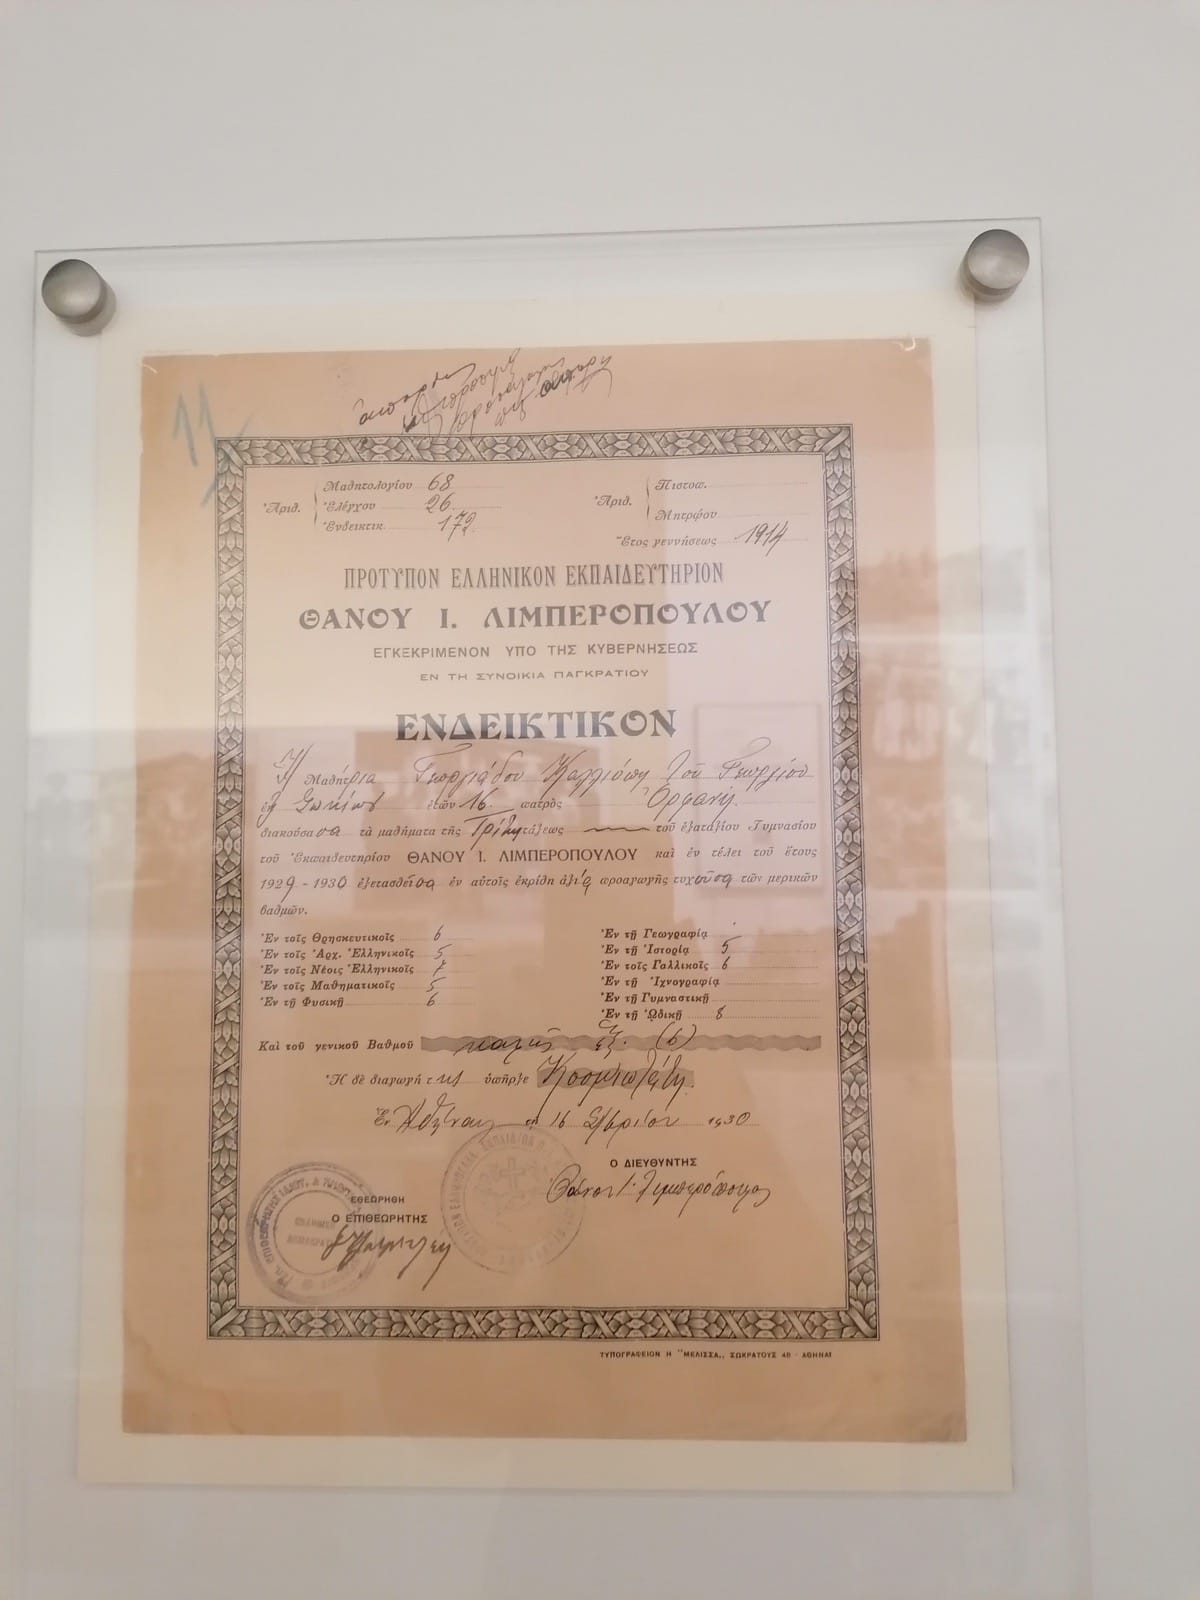 11
Ἀριθ. Μαθητολογίου 68
Ἐλέγχου 26
Ἐνδεικτικ. 172
Ἀριθ. Πιστοπ.
Μητρῴου
Ἔτος γεννήσεως 1914
ΠΡΟΤΥΠΟΝ ΕΛΛΗΝΙΚΟΝ ΕΚΠΑΙΔΕΥΤΗΡΙΟΝ
ΘΑΝΟΥ Ι. ΛΙΜΠΕΡΟΠΟΥΛΟΥ
ΕΓΚΕΚΡΙΜΕΝΟΝ ΥΠΟ ΤΗΣ ΚΥΒΕΡΝΗΣΕΩΣ
ΕΝ ΤΗ ΣΥΝΟΙΚΙΑ ΠΑΓΚΡΑΤΙΟΥ
ΕΝΔΕΙΚΤΙΚΟΝ
Ἡ Μαθήτρια Γεωργιάδου Καλλιόπη τοῦ Γεωργίου
ἐκ ἐτῶν 16 πατρὸς Ὀρφανή
διακούσασα τὰ μαθήματα τῆς Τρίτης τάξεως τοῦ ἑξαταξίου Γυμνασίου
τοῦ Ἐκπαιδευτηρίου ΘΑΝΟΥ Ι. ΛΙΜΠΕΡΟΠΟΥΛΟΥ καὶ ἐν τέλει τοῦ ἔτους
1929 - 1930 ἐξετασθεῖσα ἐν αὐτοῖς ἐκρίθη ἀξία προαγωγῆς τυχοῦσα τῶν μερικῶν
βαθμῶν.
Ἐν τοῖς Θρησκευτικοῖς 6
Ἐν τοῖς Ἀρχ. Ἑλληνικοῖς 5
Ἐν τοῖς Νέοις Ἑλληνικοῖς 7
Ἐν τοῖς Μαθηματικοῖς 5
Ἐν τῇ Φυσικῇ 6
Ἐν τῇ Γεωγραφίᾳ
Ἐν τῇ Ἱστορίᾳ 5
Ἐν τοῖς Γαλλικοῖς 6
Ἐν τῇ Ἰχνογραφίᾳ
Ἐν τῇ Γυμναστικῇ
Ἐν τῇ ᾨδικῇ 8
Καὶ τοῦ γενικοῦ Βαθμοῦ καλῶς ἕξ (6)
Ἡ δὲ διαγωγή της ὑπῆρξε Κοσμιωτάτη.
Ἐν Ἀθήναις τῇ 16 Σ/βρίου 1930
Ο ΔΙΕΥΘΥΝΤΗΣ
Θάνος Ι. Λιμπερόπουλος
ΕΘΕΩΡΗΘΗ
Ο ΕΠΙΘΕΩΡΗΤΗΣ
ΤΥΠΟΓΡΑΦΕΙΟΝ Η "ΜΕΛΙΣΣΑ,, ΣΩΚΡΑΤΟΥΣ 48 - ΑΘΗΝΑΙ